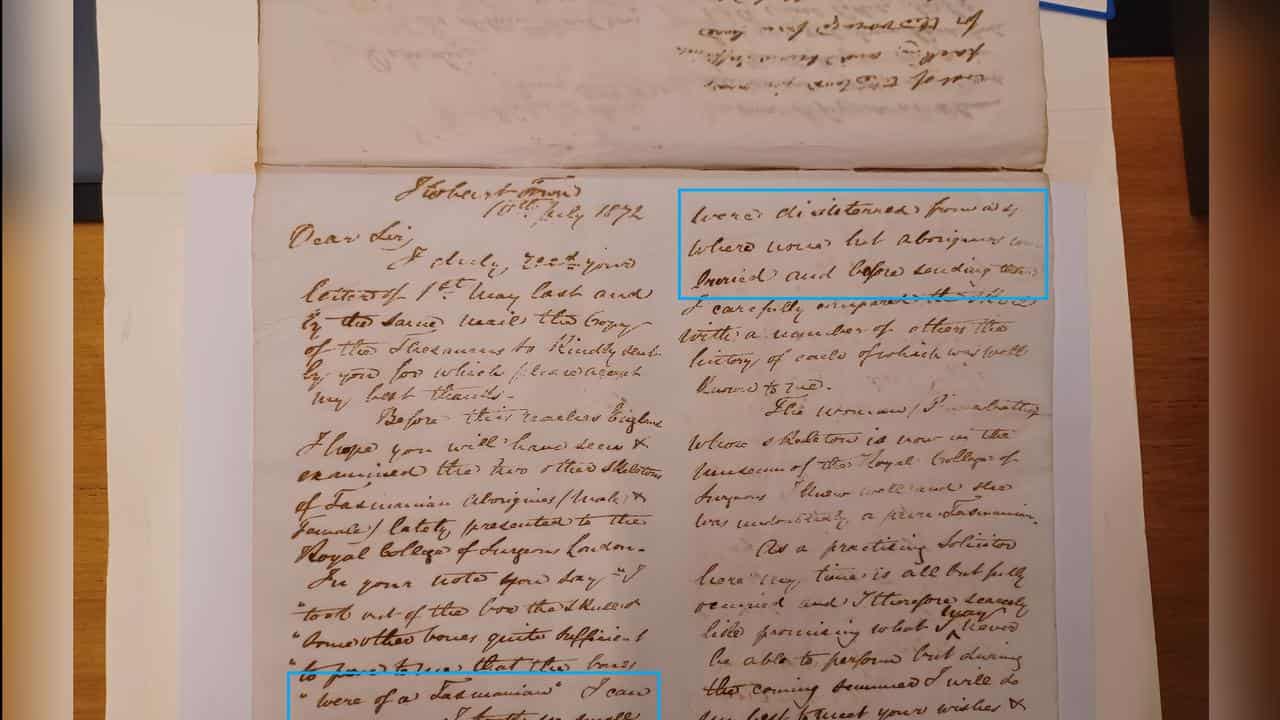 Hobart Town
10th July 1872
Dear Sir,
I duly recd your
letter of 1st May last and
by the same mail the Copy
of the Thesaurus so kindly sent
by you for which please accept
my best thanks.
Before this reaches England
I hope you will have seen &
examined the two other skeletons
of Tasmanian Aborigines (Male &
female) lately presented to the
Royal College of Surgeons London.
In your note you say "I
"took out of the box the skull &
"some other bones quite sufficient
"to prove to me that the bones
"were of a Tasmanian" I can
were disinterred from a
where none but aborigines were
buried and before sending them
I carefully compared the skull
with a number of others the
history of each of which was well
known to me.
The woman
whose skeleton is now in the
Museum of the Royal College of
Surgeons I knew well and she
was undoubtedly a pure Tasmanian.
As a practising Solicitor
here my time is all but fully
occupied and I therefore scarcely
like promising what I may never
be able to perform but during
the coming summer I will do
my best to meet your wishes &